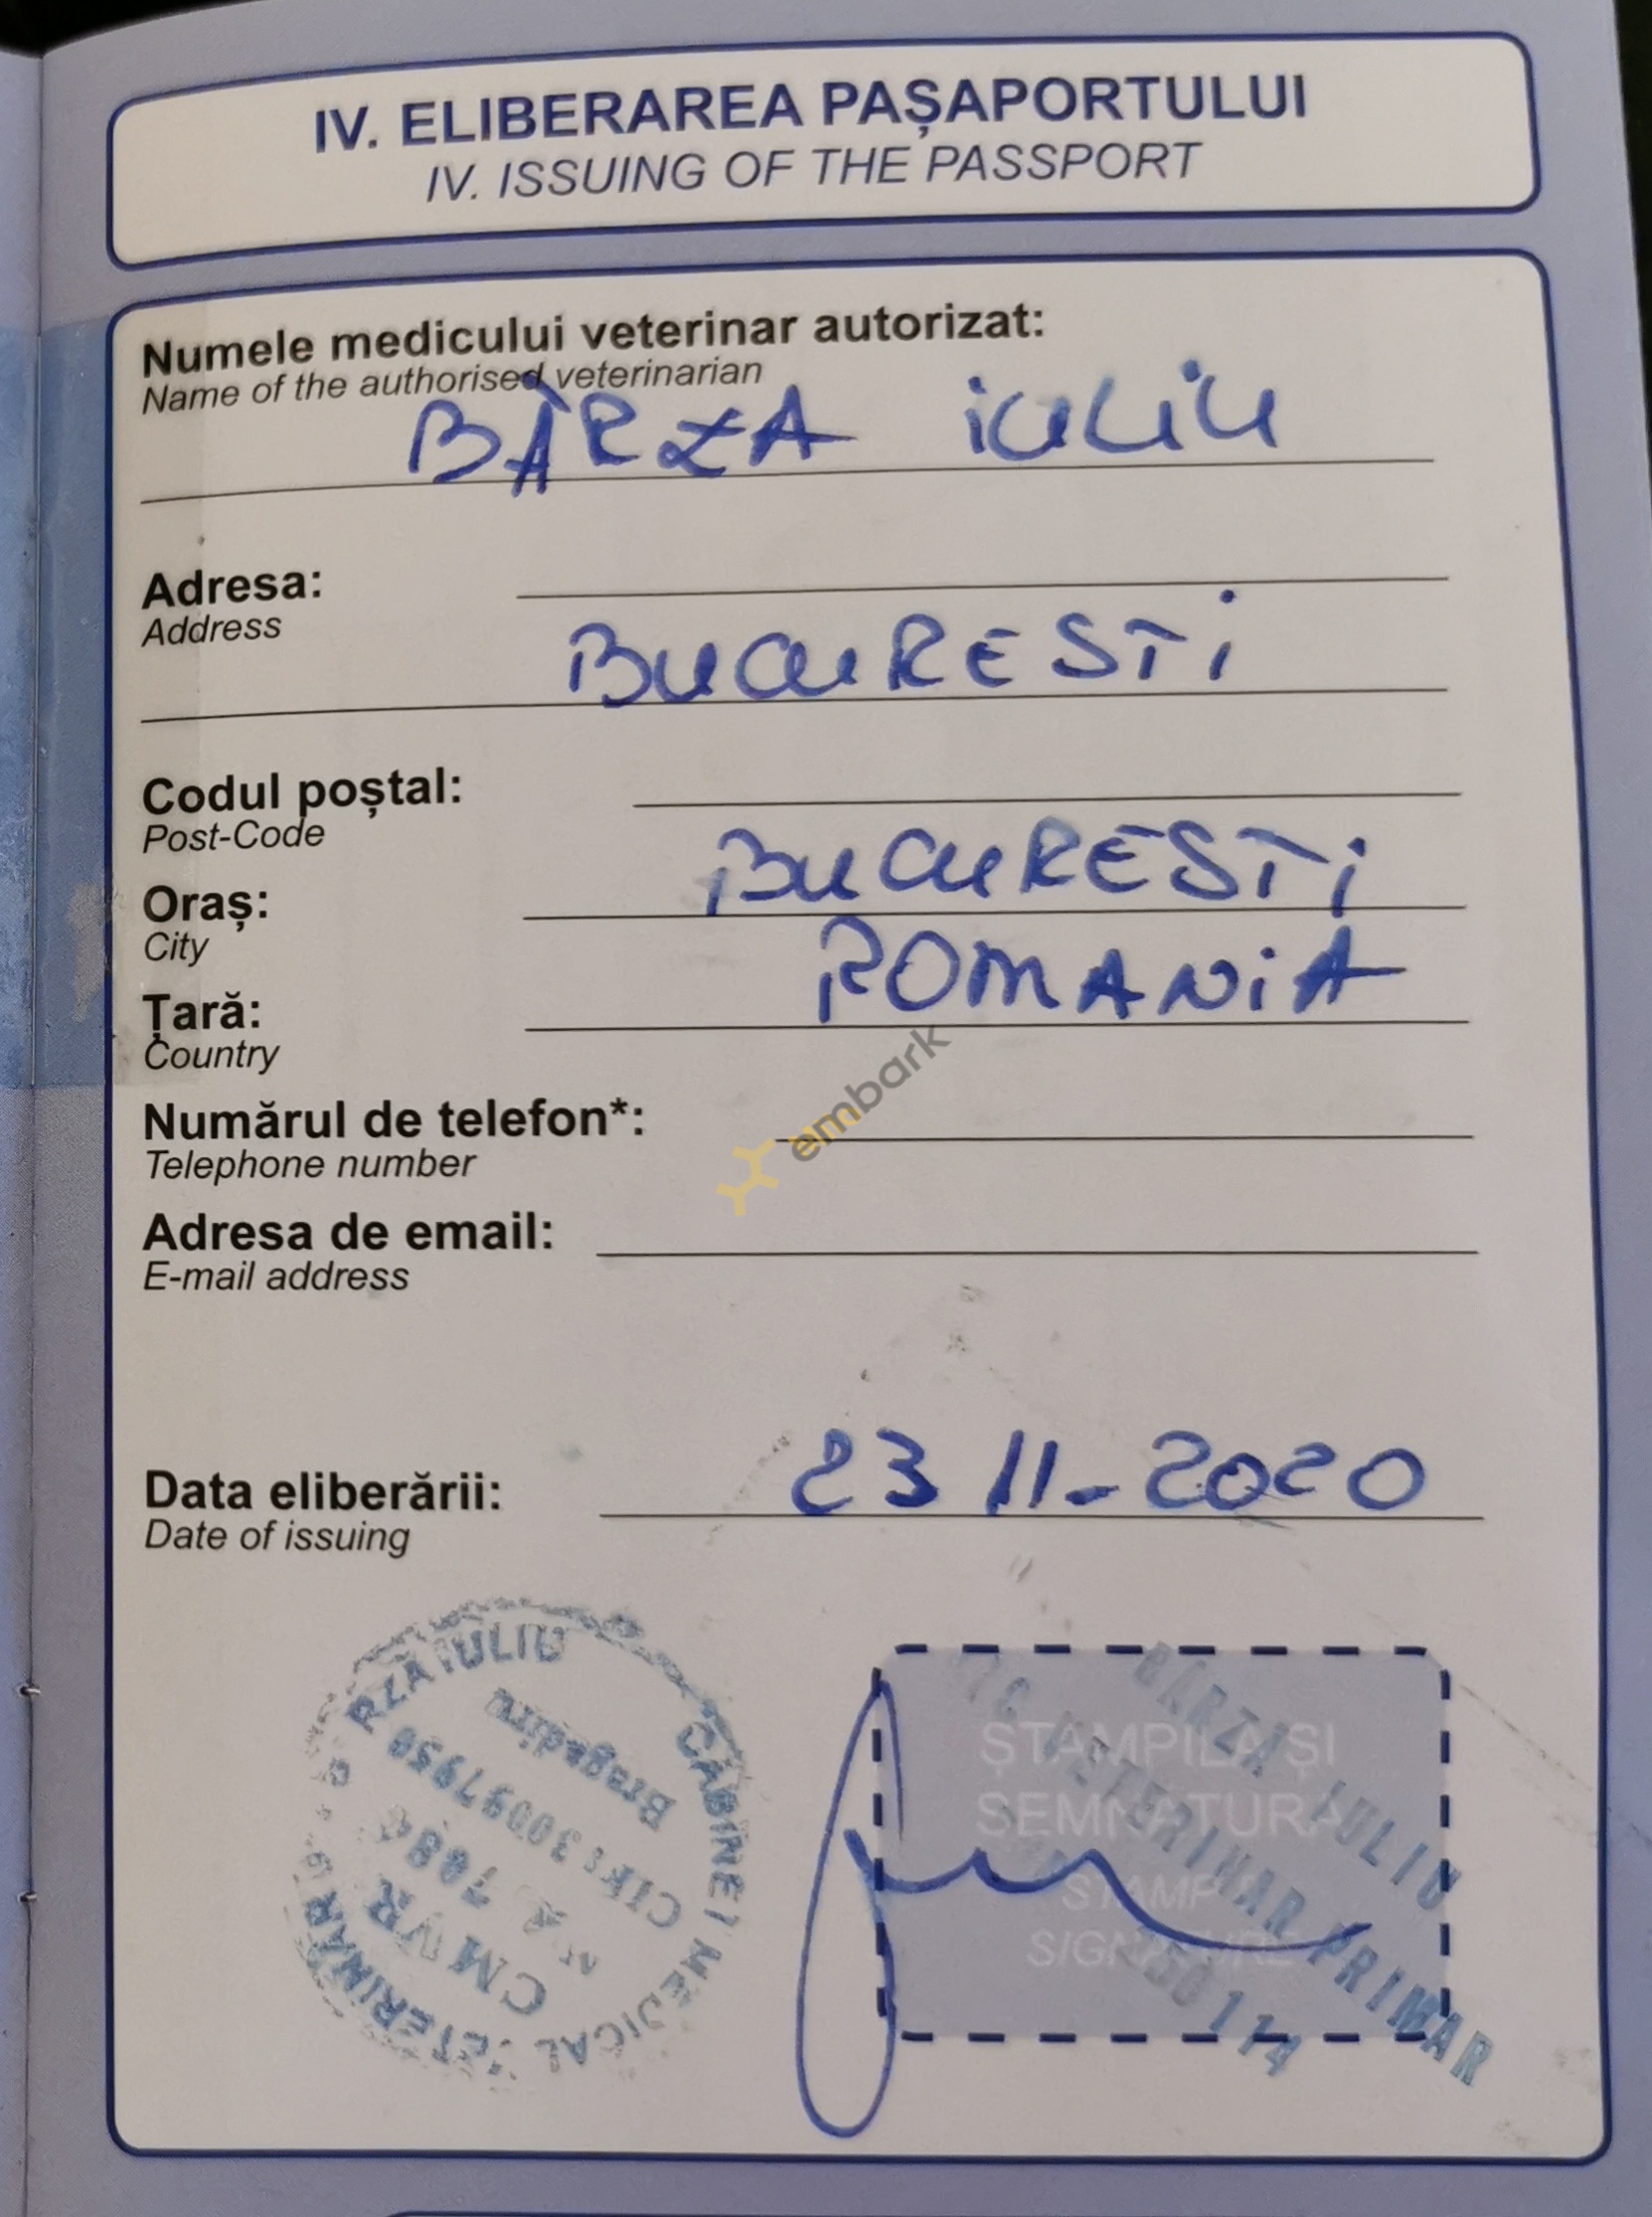 IV. ELIBERAREA PAȘAPORTULUI
IV. ISSUING OF THE PASSPORT
Numele medicului veterinar autorizat:
Name of the authorised veterinarian
BÂRZA iuLiu
Adresa:
Address
BUCURESTi
Codul poștal:
Post-Code
Oraș:
City
BUCURESTi
Țară:
Country
ROMANiA
embark
Numărul de telefon*:
Telephone number
Adresa de email:
E-mail address
Data eliberării:
Date of issuing
23 11-2020
RZA IULIU
CABINET MEDICAL VETERINAR
Bragadiru
CIF: 30097950
CMVR
ȘTAMPILA ȘI
SEMNĂTURA
STAMP
SIGNATURE
BÂRZA IULIU
VETERINAR PRIMAR